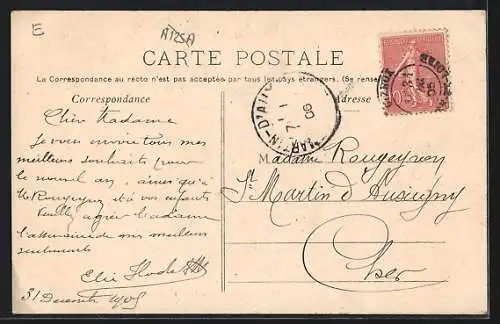 E
A125A
CARTE POSTALE
La Correspondance au recto n'est pas acceptée par tous les pays étrangers. (Se renseigner
Correspondance
Adresse
Chère Madame
je vous envoie tous mes
meilleurs souhaits pour
le nouvel an, ainsi qu'à
Mr Rougeyron et à vos enfants
Veuillez agréer Madame
l'assurance de mes meilleurs
sentiments
Elie
31 Decembre 1905
MARTIN-D'AUX
1
7
06
Madame Rougeyron
St Martin d'Auxigny
Cher